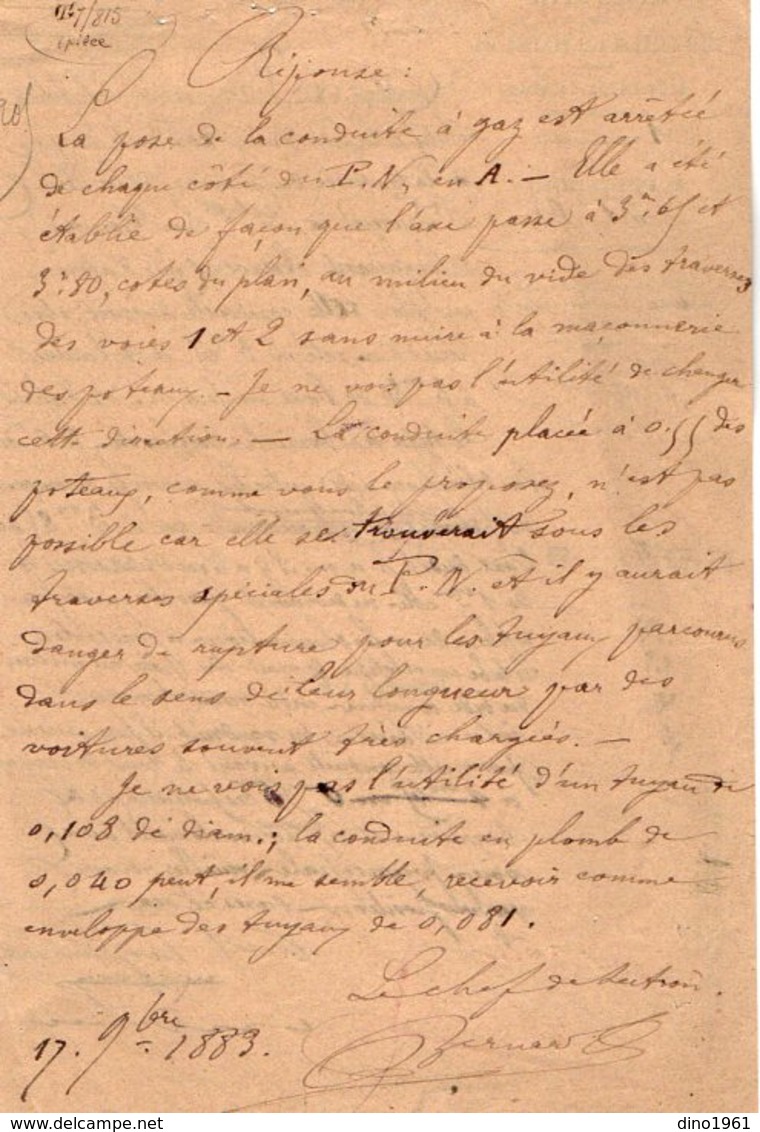 7/815
1 pièce
Réponse :
La pose de la conduite à gaz est arrêtée
de chaque côté du P.N. en A. — Elle a été
établie de façon que l'axe passe à 3m.65 et
3m.80, cotes du plan, au milieu du vide des traverses
des voies 1 et 2 sans nuire à la maçonnerie
des poteaux. — Je ne vois pas l'utilité de changer
cette direction. — La conduite placée à 0.55 des
poteaux, comme vous le proposez, n'est pas
possible car elle se trouverait sous les
traverses spéciales du P.N. et il y aurait
danger de rupture pour les tuyaux parcourus
dans le sens de leur longueur par des
voitures souvent très chargées. —
Je ne vois pas l'utilité d'un tuyau de
0,108 de diam.; la conduite en plomb de
0,040 peut, il me semble, recevoir comme
enveloppe des tuyaux de 0,081.
Le chef de section.
17. 9bre 1883.
Bernard
dino1961